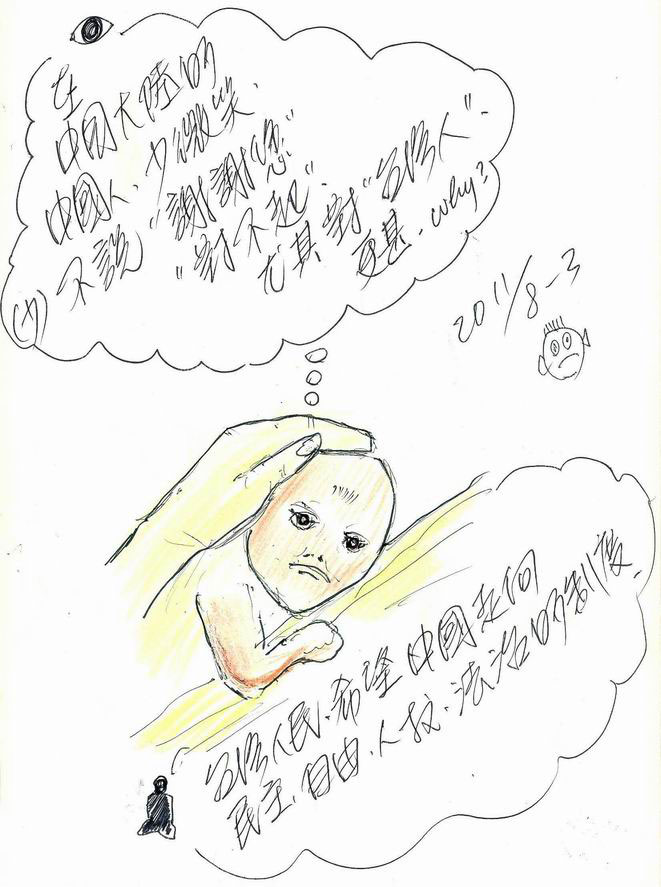 在
中國大陸的
中國人.少微笑.
(少)不說"謝謝您"
"對不起".
尤其對"台灣人".
更甚.why?
2011/8-3
台灣人民.希望中國走向
民主.自由.人权.法治的制度.